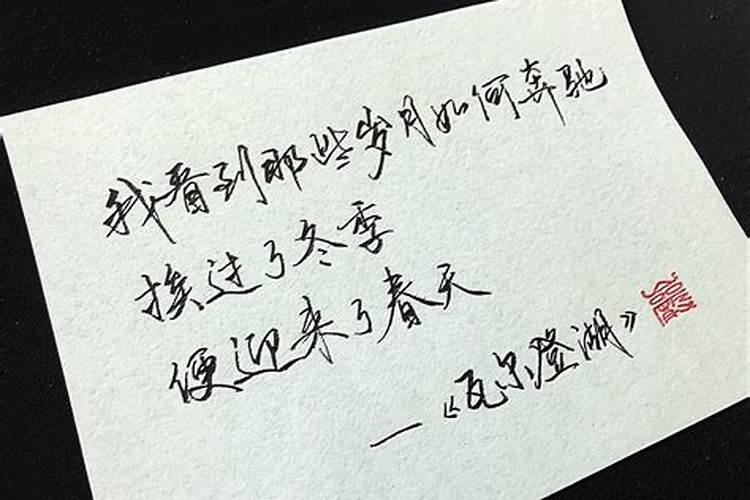 我看到那些岁月如何奔驰
挨过了冬季
便迎来了春天
—《瓦尔登湖》